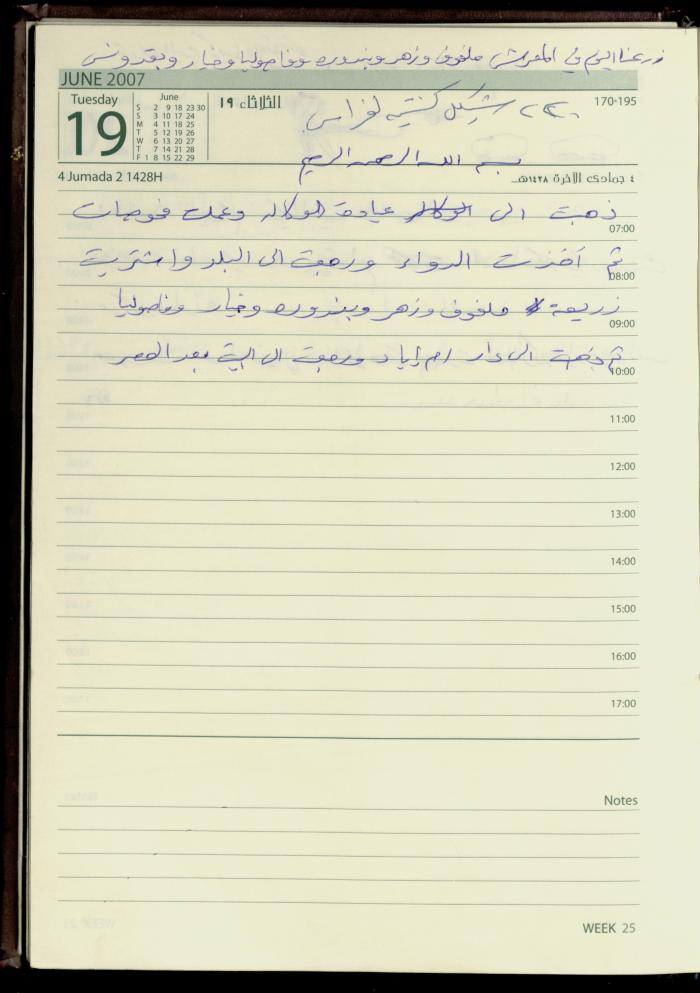 زرعنا اليوم في المفرش ملفوف وزهر وبندوره وفاصوليا وخيار وبقدونس
JUNE 2007
Tuesday
19
June
S 2 9 16 23 30
S 3 10 17 24
M 4 11 18 25
T 5 12 19 26
W 6 13 20 27
T 7 14 21 28
F 1 8 15 22 29
الثلاثاء ١٩
170-195
شيكل لفراس
بسم الله الرحمن الرحيم
4 Jumada 2 1428H
٤ جمادى الآخرة ١٤٢٨هـ
ذهبت الى عيادة الوكاله وعملت فحوصات
07:00
ثم أخذت الدواء ورجعت الى البلد واشتريت
08:00
زريعة ملفوف وزهر وبندوره وخيار وفاصوليا
09:00
ثم ذهبت الى دار ام إياد ورجعت الى البيت بعد العصر
10:00
11:00
12:00
13:00
14:00
15:00
16:00
17:00
Notes
WEEK 25